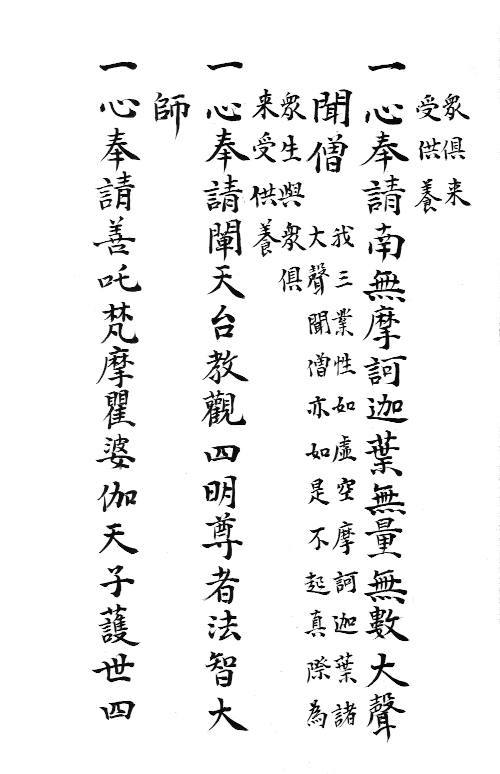 眾俱来
受供養
一心奉請南無摩訶迦葉無量無數大聲
聞僧
我三業性如虛空摩訶迦葉諸
大聲聞僧亦如是不起真際為
眾生與眾俱
来受供養
一心奉請闡天台教觀四明尊者法智大
師
一心奉請善吒梵摩瞿婆伽天子護世四